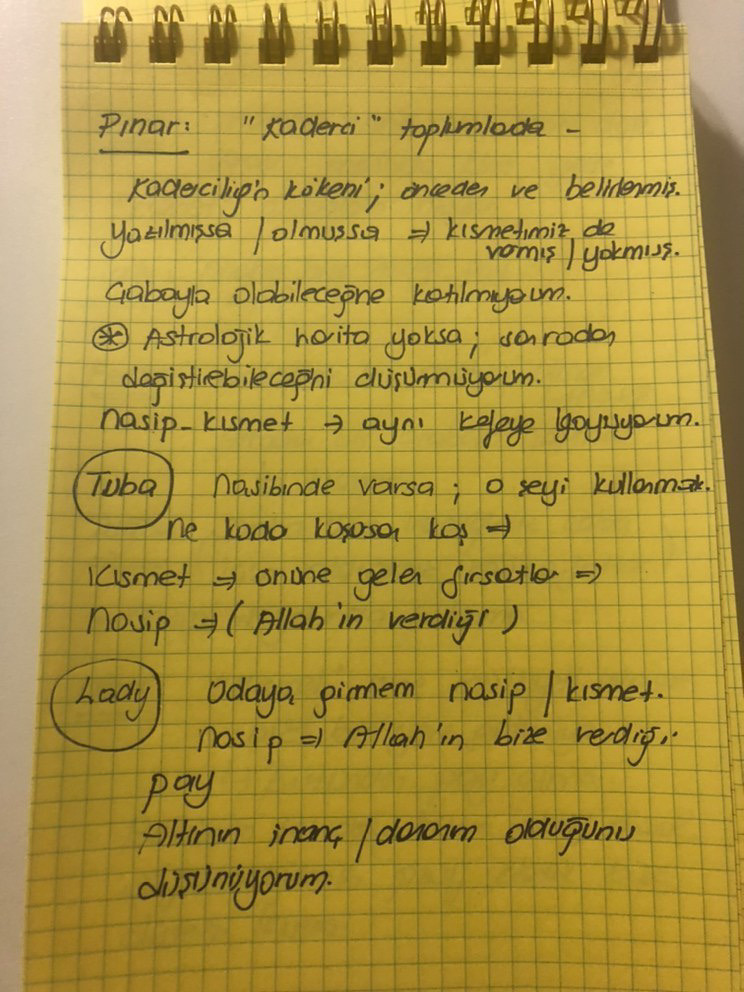 Pınar: "Kaderci" toplumlada -
Kaderciliğin kökeni; önceden ve belirlenmiş.
Yazılmışsa / olmuşsa ⇒ kısmetimiz de
varmış / yokmuş.
Çabayla olabileceğine katılmıyorum.
⊛ Astrolojik harita yoksa; sonradan
değiştirebileceğini düşünmüyorum.
Nasip-kısmet → aynı kefeye koyuyorum.
Tuba Nasibinde varsa; o şeyi kullanmak.
ne kada koşosan koş ⇒
Kısmet ⇒ önüne gelen fırsatlar ⇒
Nasip ⇒ (Allah'ın verdiği)
Lady Odaya girmem nasip / kısmet.
Nasip ⇒ Allah'ın bize verdiği
pay
Altının inanç / olduğunu
düşünüyorum.